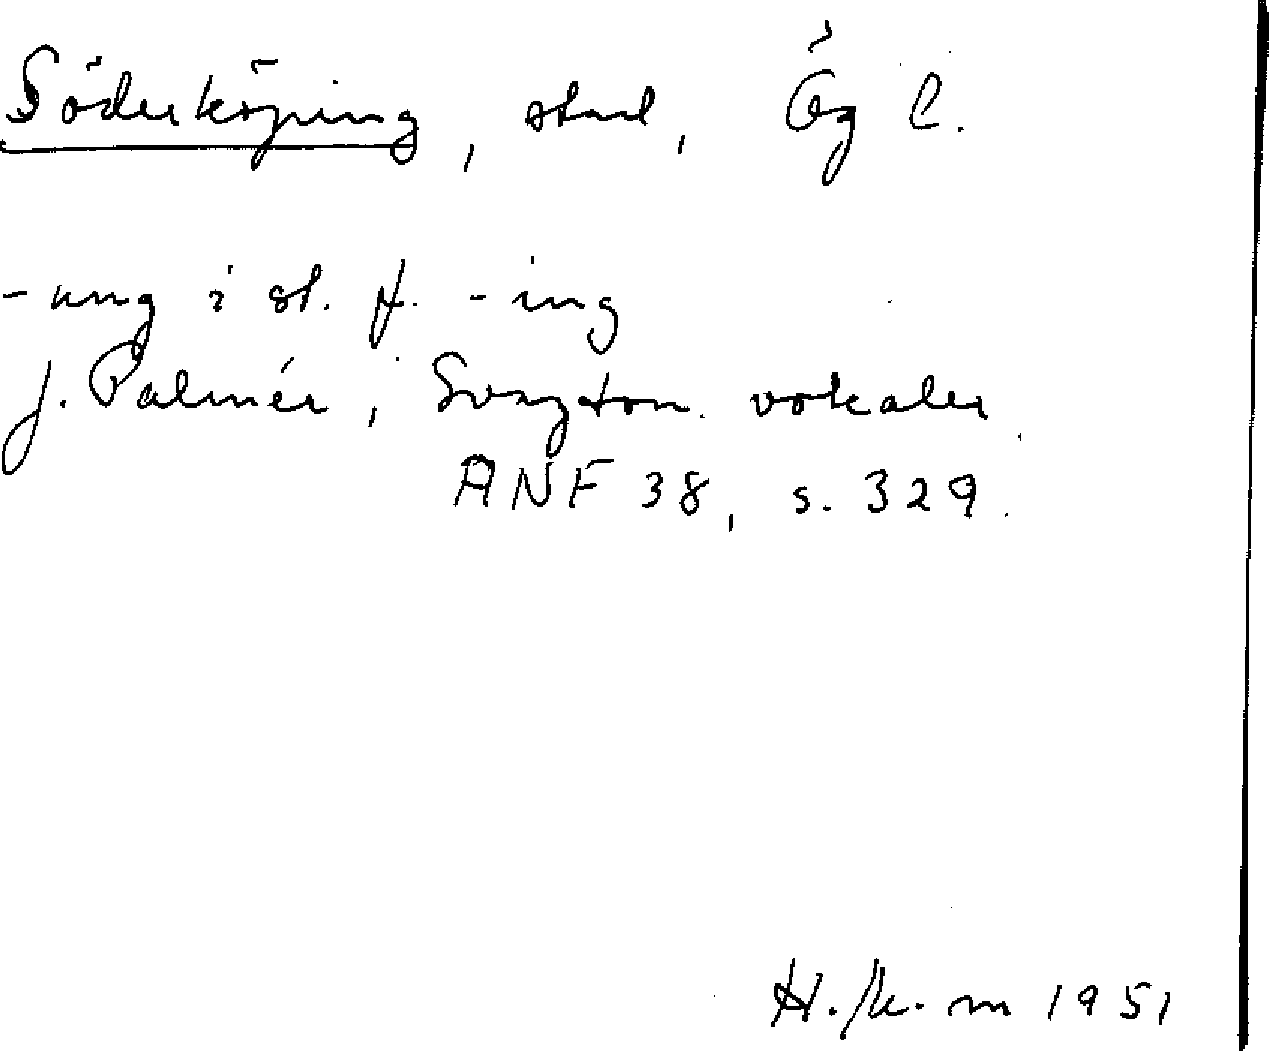 Söderköping, stad, Ög l.
-ung i st. f. -ing
J. Palmér, Svagton. vokaler
ANF 38, s. 329.
1951